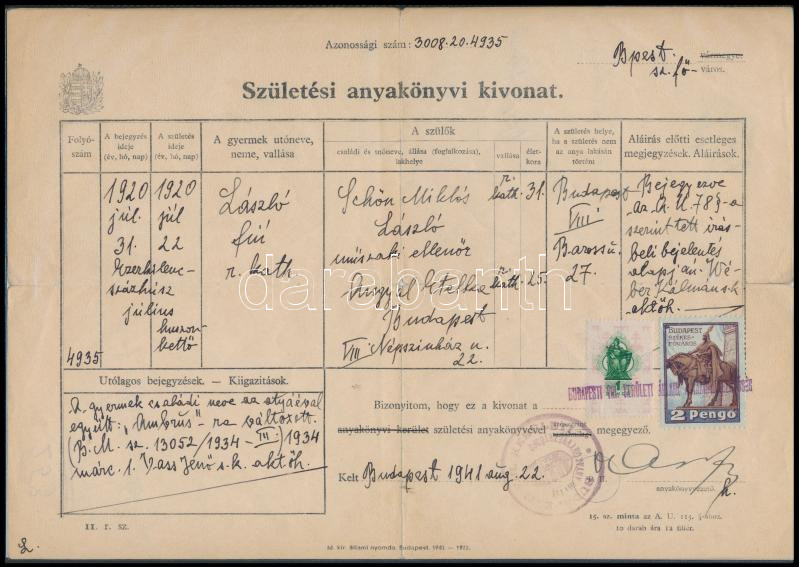 Azonossági szám: 3008.20.4935
Bpest. vármegye.
sz. fő- város.
Születési anyakönyvi kivonat.
Folyó-
szám
A bejegyzés
ideje
(év, hó, nap)
A születés
ideje
(év, hó, nap)
A gyermek utóneve,
neme, vallása
A szülők
családi és utóneve, állása (foglalkozása),
lakhelye
vallása
élet-
kora
A születés helye,
ha a születés nem
az anya lakásán
történt
Aláírás előtti esetleges
megjegyzések. Aláírások.
4935
1920
júl.
31.
Ezerkilenc-
százhúsz
július
1920
júl
22
huszon-
kettő
László
fiú
r. kath
Schön Miklós
László
műszaki ellenőr
Angyal Etelka
Budapest
VIII Népszinház u.
22.
r.
kath.
31.
r.
kath.
25.
Budapest
VIII.
Baross u.
27.
Bejegyezve
az A. U. 78 §-a
szerint tett irás-
beli bejelentés
alapján. Wé-
ber Kálmán s.k.
aktőh.
Utólagos bejegyzések. — Kiigazitások.
A gyermek családi neve az atyáéval
együtt: „Ambrus"-ra változott.
(B. M. sz. 13052/1934 - III) 1934
márc 1. Vass Jenő s.k. aktőh.
1
BUDAPEST
SZÉKES-
FŐVÁROS
2 Pengő
Bizonyitom, hogy ez a kivonat a
anyakönyvi kerület születési anyakönyvével megegyező.
Kelt Budapest 1941 aug. 22.
P. H.
anyakönyvvezető.
h.
II. r. sz.
15. sz. minta az A. U. 113. §-ához.
10 darab ára 12 fillér.
M. kir. állami nyomda. Budapest. 1941.
darabanth